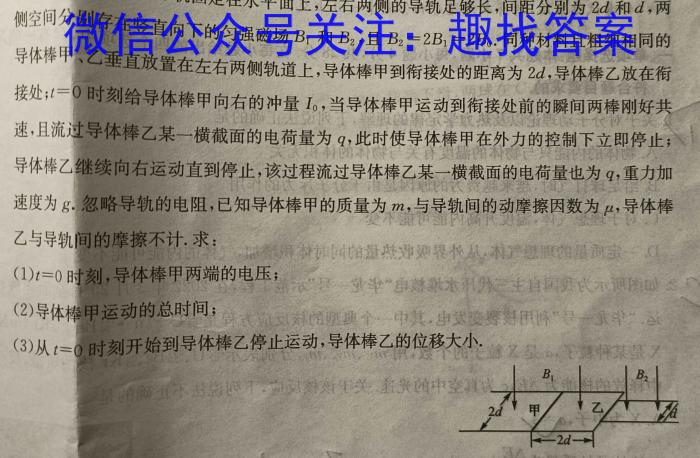 固定在水平面上,左右两侧的导轨足够长,间距分别为2d和d,两
侧空间分别存在竖直向下的匀强磁场B₁和B₂,且B₂=2B₁ 同种材料且粗细相同的
微信公众号关注:趣找答案
导体棒甲、乙垂直放置在左右两侧轨道上,导体棒甲到衔接处的距离为2d,导体棒乙放在衔
接处;t=0时刻给导体棒甲向右的冲量I₀,当导体棒甲运动到衔接处前的瞬间两棒刚好共
速,且流过导体棒乙某一横截面的电荷量为q,此时使导体棒甲在外力的控制下立即停止;
导体棒乙继续向右运动直到停止,该过程流过导体棒乙某一横截面的电荷量也为q,重力加
速度为g.忽略导轨的电阻,已知导体棒甲的质量为m,与导轨间的动摩擦因数为μ,导体棒
乙与导轨间的摩擦不计.求:
(1)t=0时刻,导体棒甲两端的电压;
(2)导体棒甲运动的总时间;
(3)从t=0时刻开始到导体棒乙停止运动,导体棒乙的位移大小.
B₁ B₂
2d 甲 乙 d
2d